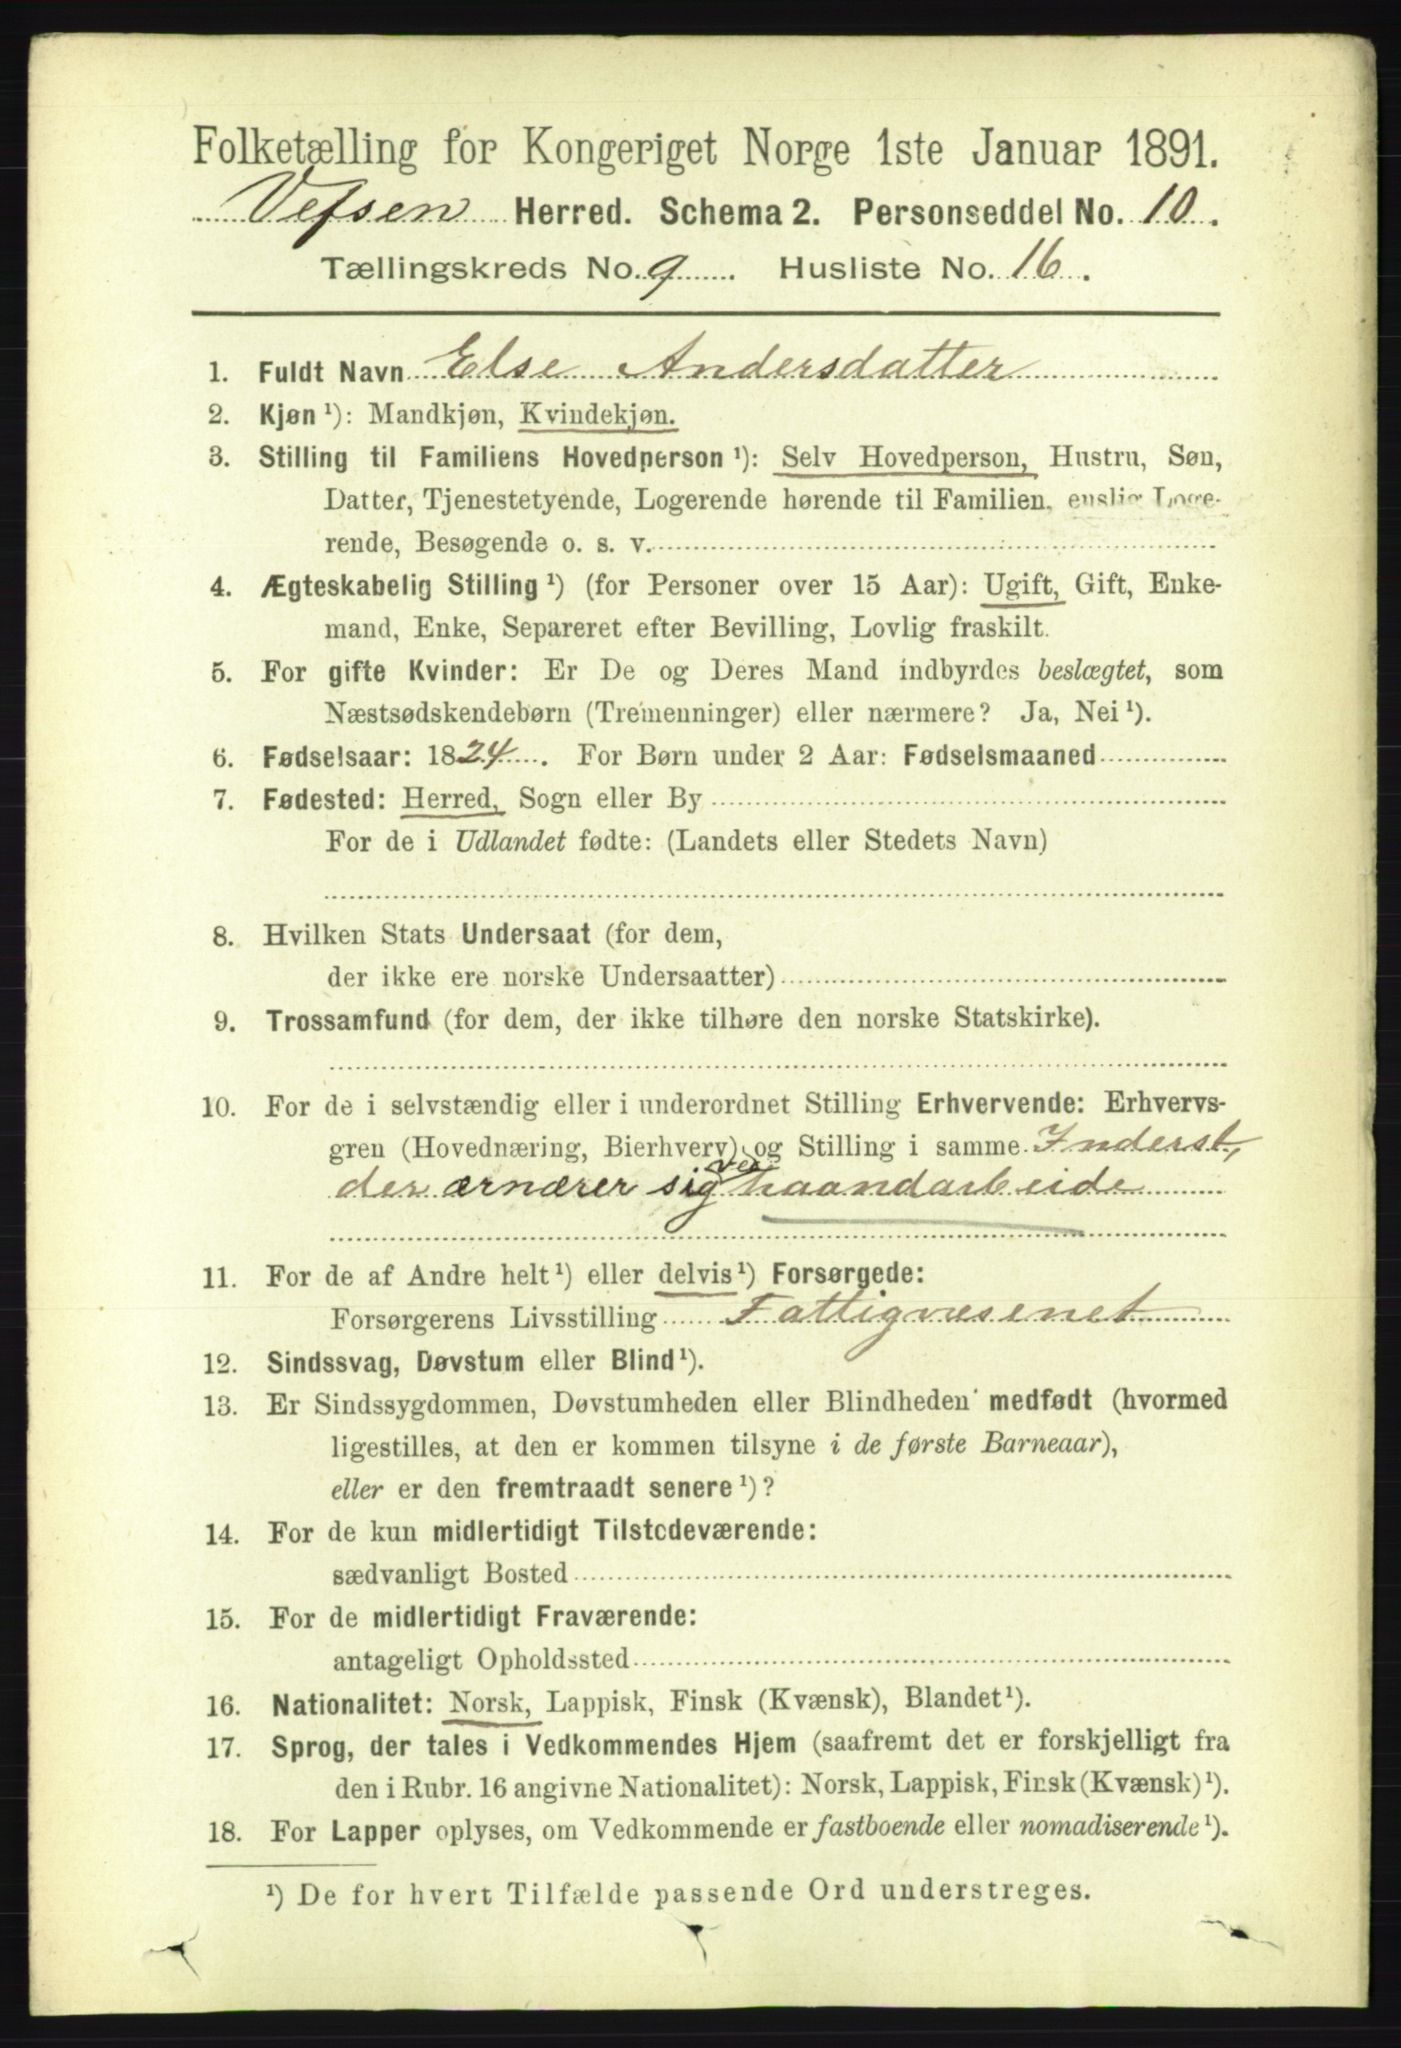 Folketælling for Kongeriget Norge 1ste Januar 1891.
Vefsen Herred. Schema 2. Personseddel No. 10.
Tællingskreds No. 9. Husliste No. 16.
1. Fuldt Navn Else Andersdatter
2. Kjøn ¹): Mandkjøn, Kvindekjøn.
3. Stilling til Familiens Hovedperson ¹): Selv Hovedperson, Hustru, Søn,
Datter, Tjenestetyende, Logerende hørende til Familien, enslig Loge-
rende, Besøgende o. s. v.
4. Ægteskabelig Stilling ¹) (for Personer over 15 Aar): Ugift, Gift, Enke-
mand, Enke, Separeret efter Bevilling, Lovlig fraskilt.
5. For gifte Kvinder: Er De og Deres Mand indbyrdes beslægtet, som
Næstsødskendebørn (Tremenninger) eller nærmere? Ja, Nei ¹).
6. Fødselsaar: 1824. For Børn under 2 Aar: Fødselsmaaned
7. Fødested: Herred, Sogn eller By
For de i Udlandet fødte: (Landets eller Stedets Navn)
8. Hvilken Stats Undersaat (for dem,
der ikke ere norske Undersaatter)
9. Trossamfund (for dem, der ikke tilhøre den norske Statskirke).
10. For de i selvstændig eller i underordnet Stilling Erhvervende: Erhvervs-
gren (Hovednæring, Bierhverv) og Stilling i samme. Inderst,
der ærnærer sig ved haandarbeide
11. For de af Andre helt ¹) eller delvis ¹) Forsørgede:
Forsørgerens Livsstilling Fattigvæsenet
12. Sindssvag, Døvstum eller Blind ¹).
13. Er Sindssygdommen, Døvstumheden eller Blindheden medfødt (hvormed
ligestilles, at den er kommen tilsyne i de første Barneaar),
eller er den fremtraadt senere ¹)?
14. For de kun midlertidigt Tilstedeværende:
sædvanligt Bosted
15. For de midlertidigt Fraværende:
antageligt Opholdssted
16. Nationalitet: Norsk, Lappisk, Finsk (Kvænsk), Blandet ¹).
17. Sprog, der tales i Vedkommendes Hjem (saafremt det er forskjelligt fra
den i Rubr. 16 angivne Nationalitet): Norsk, Lappisk, Finsk (Kvænsk) ¹).
18. For Lapper oplyses, om Vedkommende er fastboende eller nomadiserende ¹).
¹) De for hvert Tilfælde passende Ord understreges.